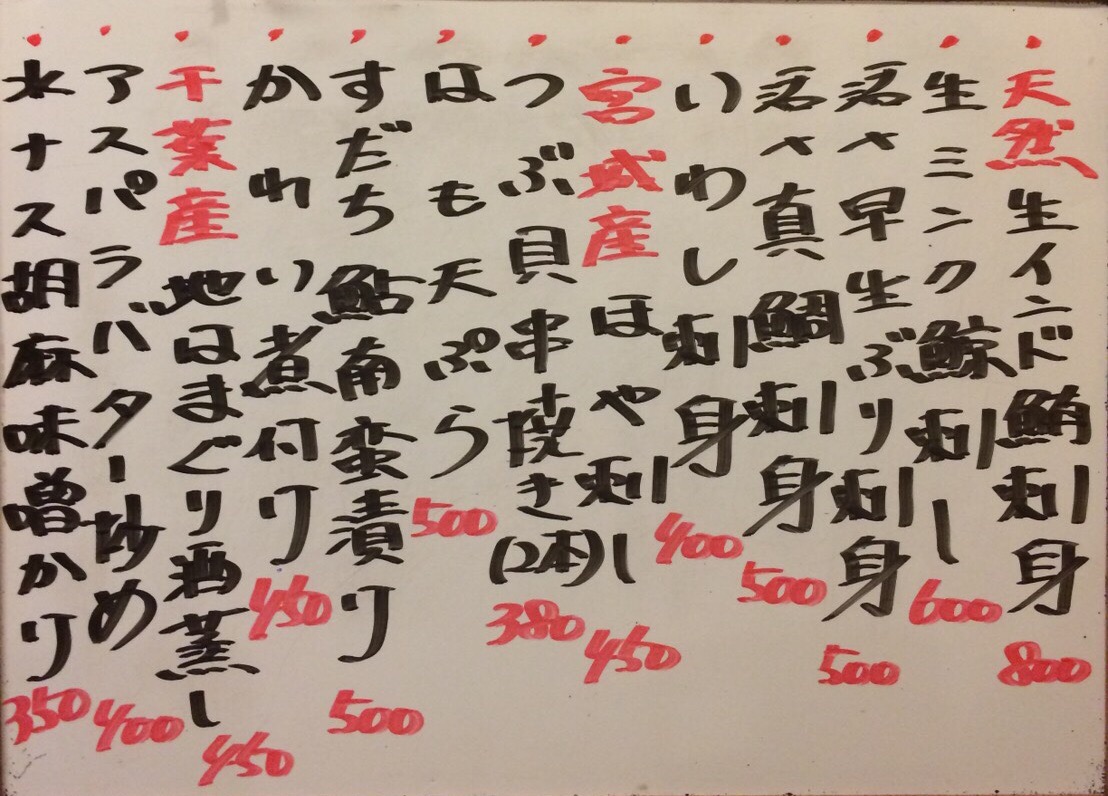 ・天然生インド鮪刺身 800
・生ミンク鯨刺し 600
・早生ぶり刺身 500
・真鯛刺身 500
・いわし刺身 400
・宮城産ほや刺し 450
・つぶ貝串焼き(2本) 380
・はも天ぷら 500
・すだち鮎南蛮漬け 500
・かれい煮付け 450
・千葉産地はまぐり酒蒸し 450
・アスパラバター炒め 400
・水ナス胡麻味噌かけ 350